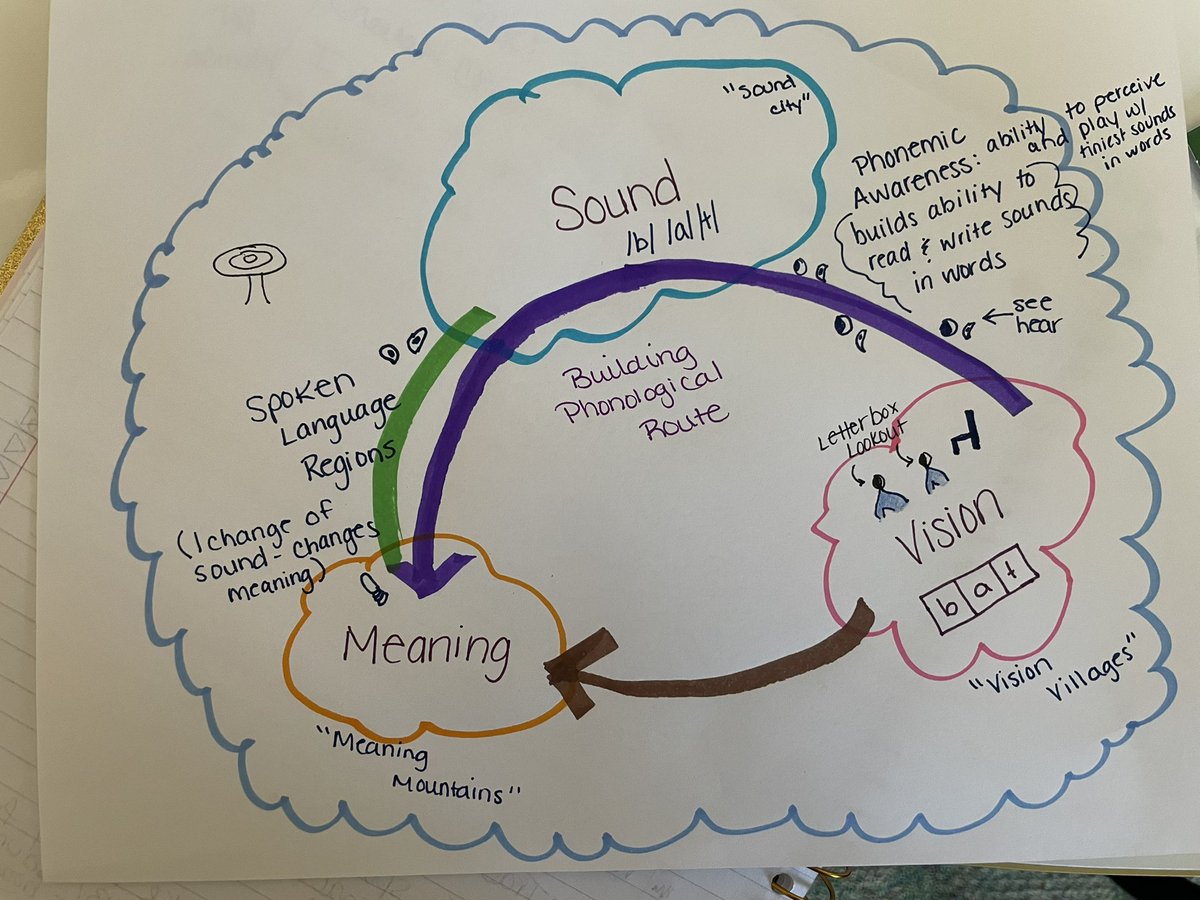 "Sound
city"
Sound
/b/ /a/ /t/
Phonemic
Awareness: ability to perceive
and play w/
tiniest sounds
in words
builds ability to
read & write sounds
in words
see
hear
Building
Phonological
Route
Spoken
Language
Regions
(1 change of
sound - changes
meaning)
Letterbox
Lookout
Vision
b a t
"Vision
Villages"
Meaning
"Meaning
Mountains"